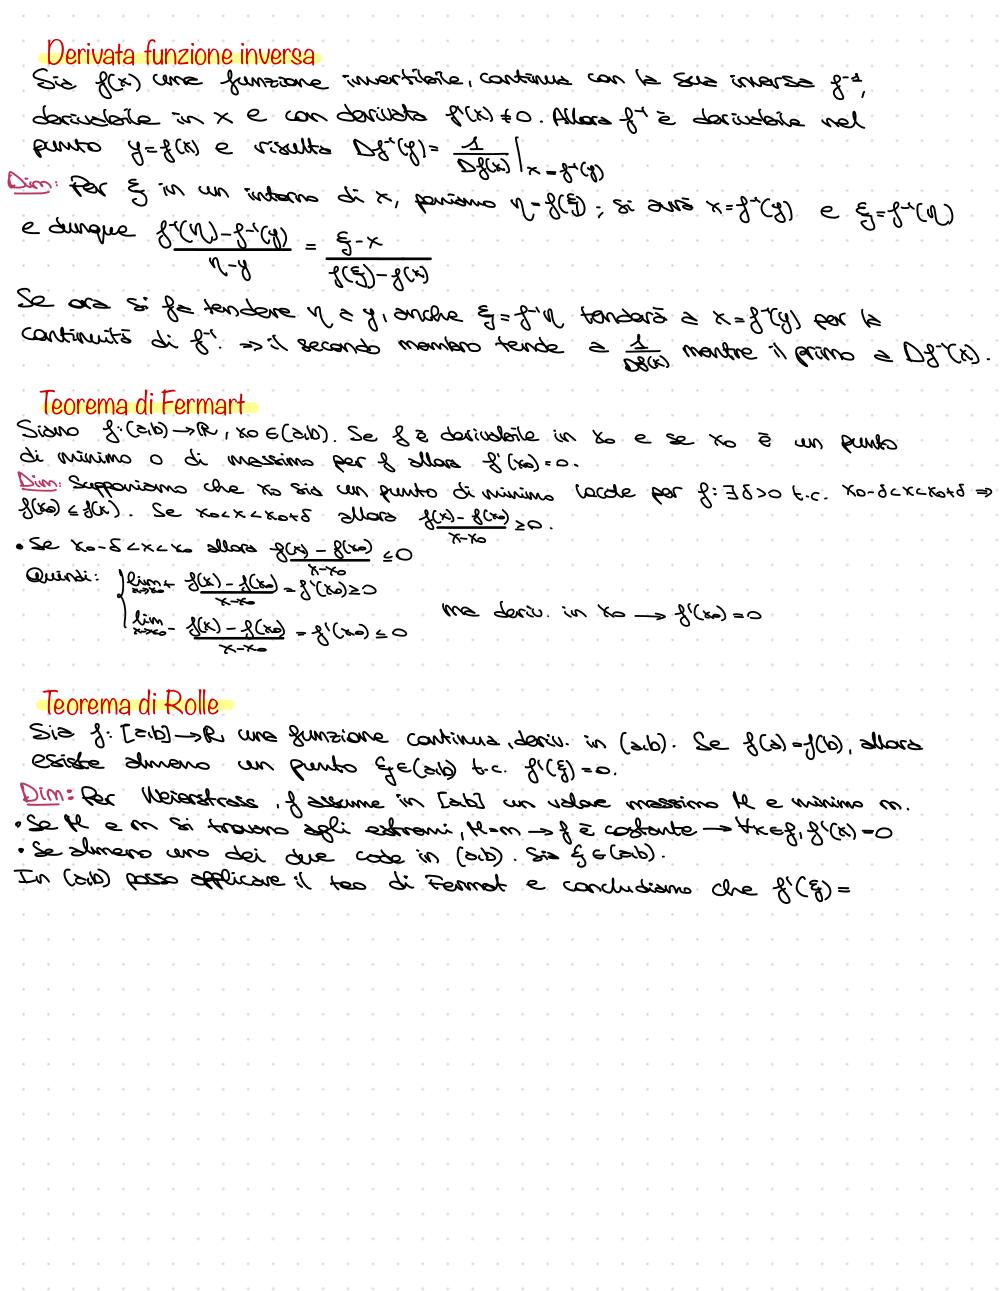 Derivata funzione inversa
Sia f(x) una funzione invertibile, continua con la sua inversa f⁻¹,
derivabile in x e con derivata f'(x) ≠ 0. Allora f⁻¹ è derivabile nel
punto y=f(x) e risulta Df⁻¹(y) = 1/Df(x) |x=f⁻¹(y)
Dim: Per ξ in un intorno di x, poniamo η=f(ξ); si avrà x=f⁻¹(y) e ξ=f⁻¹(η)
e dunque (f⁻¹(η)-f⁻¹(y))/(η-y) = (ξ-x)/(f(ξ)-f(x))
Se ora si fa tendere η a y, anche ξ=f⁻¹η tenderà a x=f⁻¹(y) per la
continuità di f⁻¹. ⇒ il secondo membro tende a 1/Df(x) mentre il primo a Df⁻¹(x).
Teorema di Fermart
Siano f:(a,b)→ℝ, x₀∈(a,b). Se f è derivabile in x₀ e se x₀ è un punto
di minimo o di massimo per f allora f'(x₀)=0.
Dim: Supponiamo che x₀ sia un punto di minimo locale per f: ∃δ>0 t.c. x₀-δ<x<x₀+δ ⇒
f(x₀)≤f(x). Se x₀<x<x₀+δ allora (f(x)-f(x₀))/(x-x₀) ≥0.
• Se x₀-δ<x<x₀ allora (f(x)-f(x₀))/(x-x₀) ≤0
Quindi: { lim x→x₀⁺ (f(x)-f(x₀))/(x-x₀) = f'(x₀)≥0
lim x→x₀⁻ (f(x)-f(x₀))/(x-x₀) = f'(x₀)≤0
ma deriv. in x₀ → f'(x₀)=0
Teorema di Rolle
Sia f: [a,b]→ℝ una funzione continua, deriv. in (a,b). Se f(a)=f(b), allora
esiste almeno un punto ξ∈(a,b) t.c. f'(ξ)=0.
Dim: Per Weierstrass, f assume in [a,b] un valore massimo M e minimo m.
• Se M e m si trovano agli estremi, M=m → f è costante → ∀x∈f, f'(x)=0
• Se almeno uno dei due cade in (a,b). Sia ξ∈(a,b).
In (a,b) posso applicare il teo di Fermat e concludiamo che f'(ξ)=